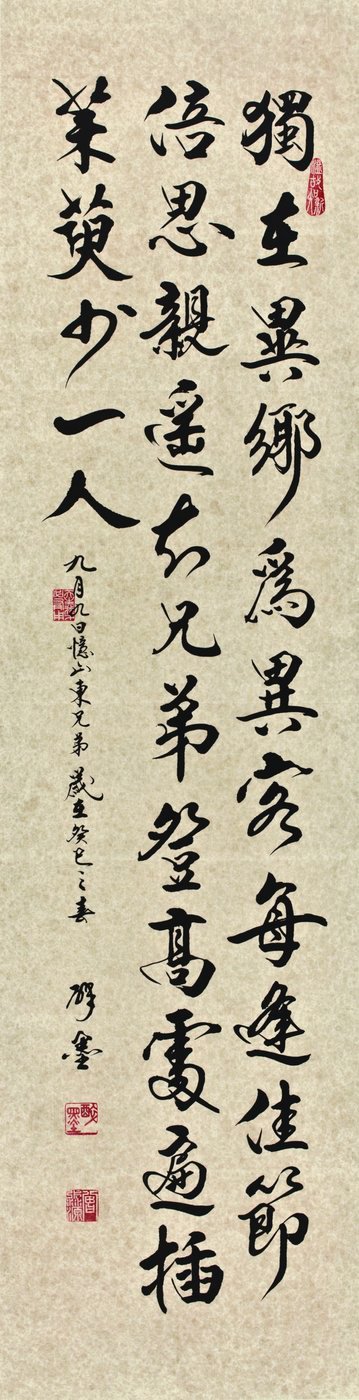 獨在異鄉爲異客每逢佳節
倍思親遥知兄弟登高處遍插
茱萸少一人
九月九日憶山東兄弟 歲在癸巳之春 醉墨